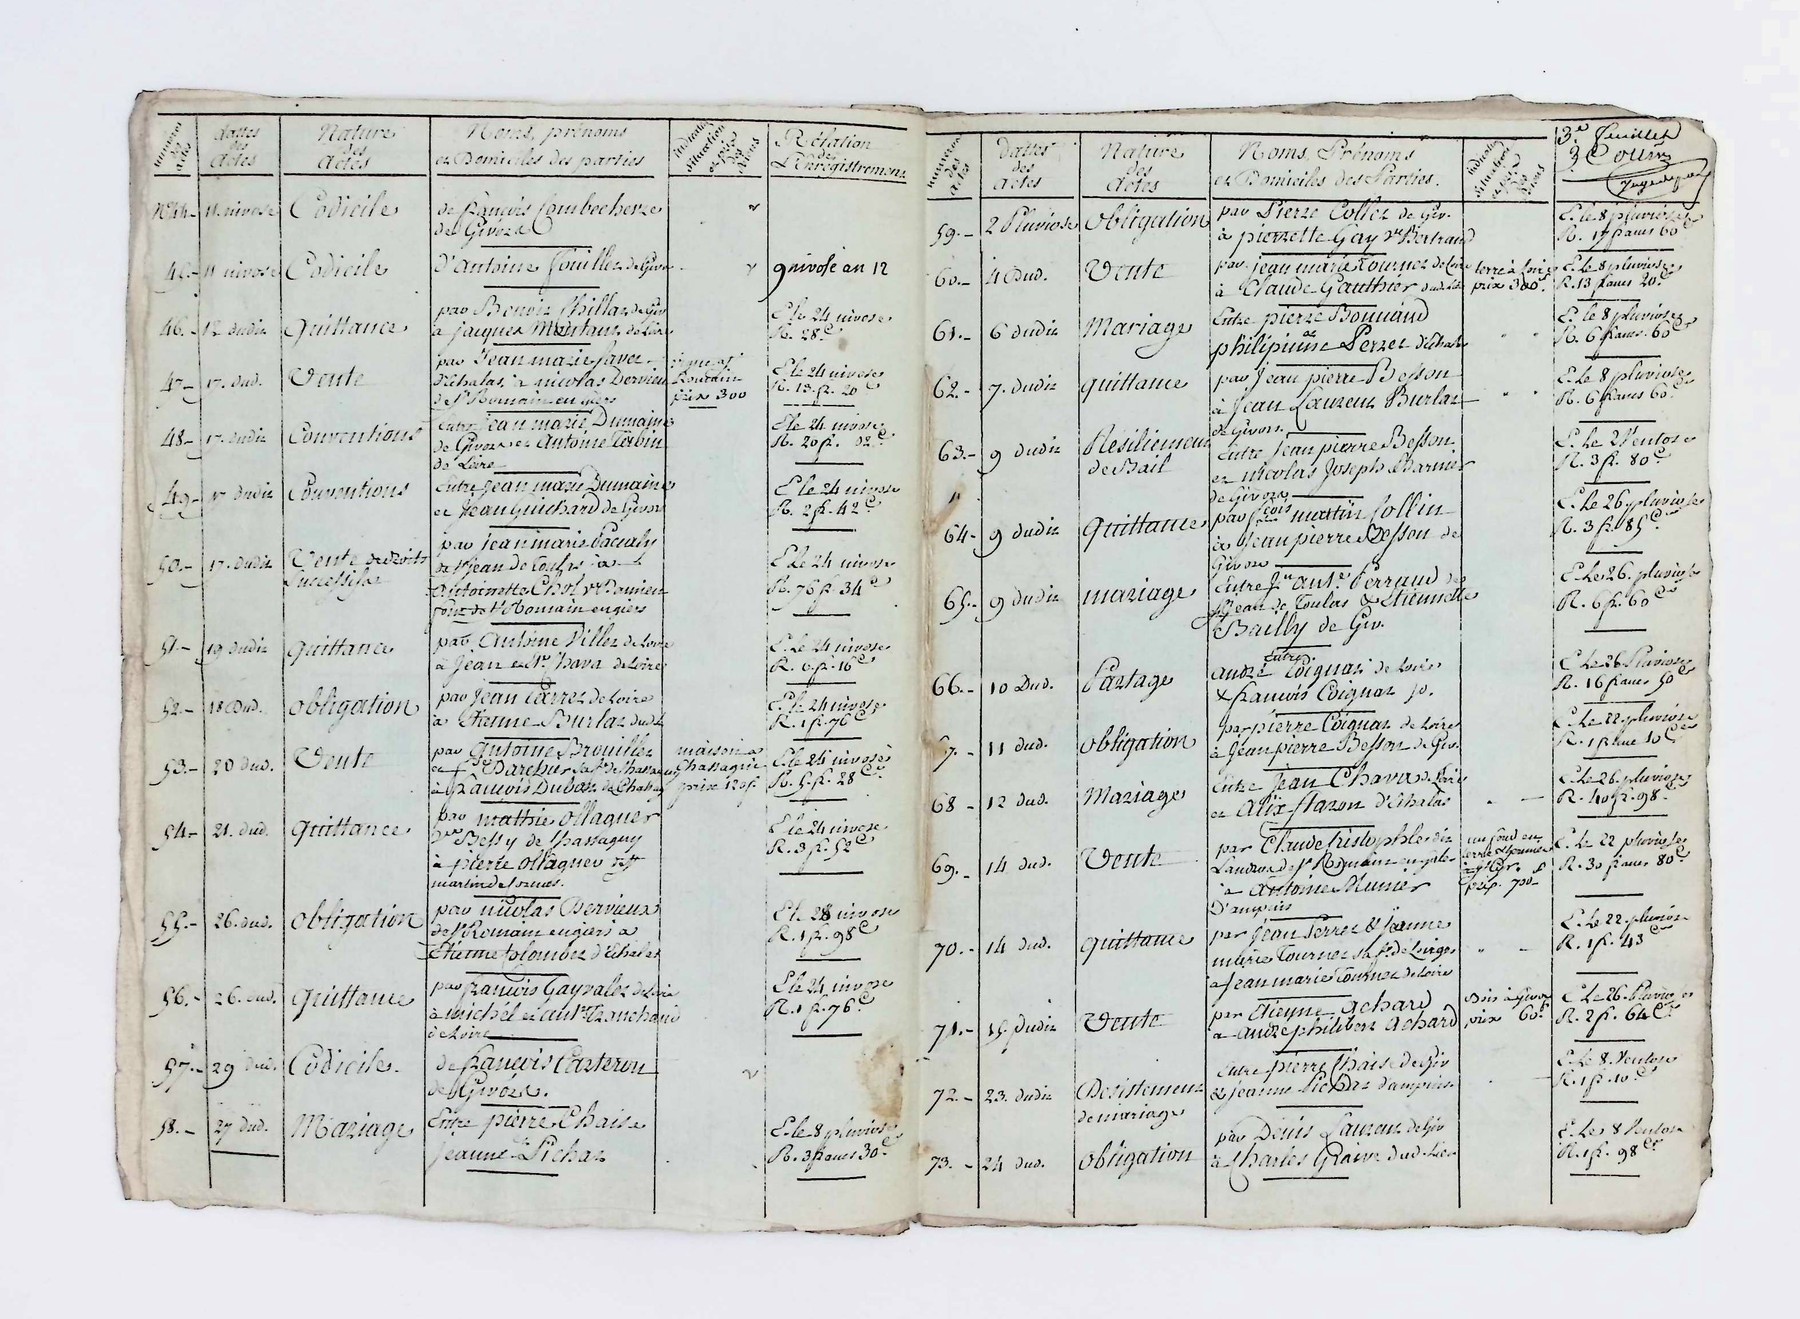 numéros des actes
dattes des actes
Nature des actes
Noms, prénoms
et Domiciles des parties
Rélation
de
L'Enregistrement
N° 44 - 11. nivose Codicile de françois Combecherze
de Givors
45. - 11 nivose Codicile d'Antoine souillet de Givor. 9 nivose an 12
46. - 12 dudit quittance par Benoit Chillat de Giv.
à jacques de Loire
E le 24 nivose
R. 28 c.
47 - 17. dud. Vente par Jean marie favet
d'échalas à nicolas Dervieu
de St Romain en giers
Romain
prix 300
E le 24 nivose
R. 13. fr. 20
48 - 17. dudit Conventions entre jean marie Dumaine
de Givors et Antoine
de Loire
E le 24 nivose
R. 20 f. 02 c.
49 - 17 dudit Conventions Entre jean marie Dumaine
et Jean Guichard de Givors
E le 24 nivose
R. 2 f. 42 c.
50. - 17. dudit Vente de droits
successifs
par jean marie
de St jean de à
Antoinette Chol
de St Romain en giers
E le 24 nivose
R. 76 f. 34 c.
51. - 19 dudit quittance par Antoine Villet de Loire
à Jean Chava de Loire
E. le 24 nivose
R. 6 f. 16 c.
52. - 18 dud. obligation par Jean Carret de Loire
à Etienne Burlat dud. L.
E. le 24 nivose
R. 1 f. 76 c.
53. - 20 dud. Vente par Antoine Brouillet
et sa fe de Chassagny
à françois Dubost de Chassagny
maison à
Chassagnie
prix 120 f.
E. le 24 nivose
R. 5 f. 28 c.
54 - 21. dud. quittance par mathie ollagner
Bessy de Chassagny
à pierre ollagner de St
martin de Cornas.
E le 24 nivose
R. 3 f. 52 c.
55. - 26. dud. obligation par nicolas Dervieux
de St Romain en giers à
Etienne Colombet d'Echalas
E le 28 nivose
R. 1 f. 98 c.
56. - 26. dud. quittance par françois Gayvalet de Loire
à michel et ante Tranchand
de Loire
E le 24 nivose
R. 1 f. 76 c.
57. - 29 dud. Codicile. de françois Carteron
de Givors.
58. - 27 dud. Mariage Entre pierre Chaise
Jeanne Pichat
E. le 8 pluviose
R. 3 francs 30 c.
3.e feuillet
numéros des actes
Dattes des actes
Nature des actes
Noms, Prénoms
et Domiciles des Parties.
59. - 2 Pluviose Obligation par Pierre Collet de Giv.
à pierrette Gay ve Bertrand
E. le 8 pluviose
R. 17 francs 60 c.
60. - 4 dud. Vente par jean marie Tournez de Loire
à Claude Gauthier dud. Lieu
terre à Loire
prix 300 f.
E. le 8 pluviose
R. 13 francs 20 c.
61. - 6 dudit Mariage Entre pierre Bonnand
et philipine Perret d'Echalas
E. le 8 pluviose
R. 6 francs. 60 c.
62. - 7. dudit quittance par Jean pierre Besson
à Jean Laurent Burlat
de Givors.
E. le 8 pluviose
R. 6 francs 60 c.
63. - 9 dudit Résiliement
de Bail
Entre Jean pierre Besson
et nicolas Joseph Charnier
de Givors
E. le 2 Ventose
R. 3 f. 80 c.
64 - 9 dudit quittance par fçois matin Collin
à Jean pierre Besson de
Givors
E. le 26 pluviose
R. 3 f. 85 c.
65. - 9 dudit mariage Entre Jn ante Perraud de
St jean de Toulas & Etiennette
Bailly de Giv.
E le 26. pluviose
R. 6 f. 60 c.
66. - 10 Dud. Partage entre
andré Coignat de Loire
& françois Coignat
E le 26 Pluviose
R. 16 francs 50 c.
67. - 11 dud. obligation par pierre Coignat de Loire
à Jean pierre Besson de Giv.
E. le 22 pluviose
R. 1 franc 10 c.
68 - 12 dud. Mariage Entre Jean Chavas de Loire
et Alix flaron d'Echalas
E. le 26. pluviose
R. 40 f. 98 c.
69. - 14 dud. Vente par Claude
de St Romain en giers
à Antoine Munier
D'ampuis
prix 700
E. le 22 pluviose
R. 30 francs 80 c.
70. - 14 dud. quittance par Jean Perret & jeanne
marie Tournez sa fe de
à Jean marie Tournez de Loire
E. le 22. pluviose
R. 1 f. 43 c.
71. - 15 dudit Vente par Etienne Achard
à andré philibert Achard
Bois à Givors
prix 60 f.
E le 26. Pluviose
R. 2 f. 64 c.
72. - 23. dudit Desistement
de mariage
Entre pierre Chaise de Giv
& jeanne Pichat d'ampuis
E. le 8. Ventose
R. 1 f. 10 c.
73. - 24 dud. obligation par Denis Laurent de Giv
à Charles Graive dud. Lieu
E. le 8 Ventose
R. 1 f. 98 c.